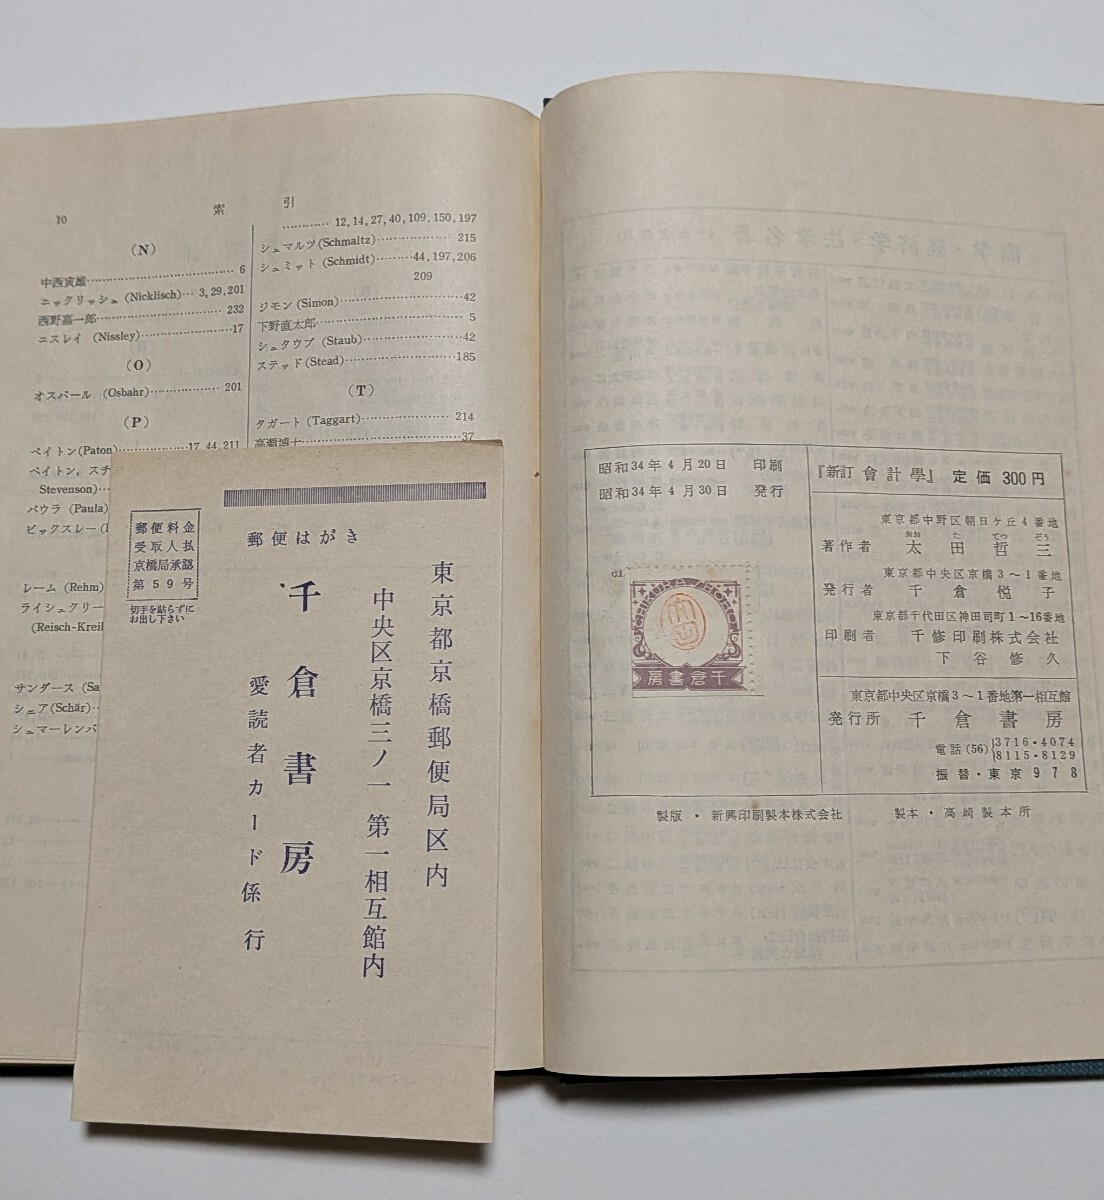 10 索引
(N)
中西寅雄 6
ニックリッシュ (Nicklisch) 3, 29, 201
西野嘉一郎 232
ニスレイ (Nissley) 17
(O)
オスバール (Osbahr) 201
(P)
ペイトン(Paton) 17, 44, 211
ペイトン, スチ
Stevenson)
パウラ (Paula)
ピックスレー
レーム (Rehm)
ライシュグリー
(Reisch-Kreib
サンダース (Sa
シェア(Schär)
シュマーレンバ
12, 14, 27, 40, 109, 150, 197
シュマルツ(Schmaltz) 215
シュミット (Schmidt) 44, 197, 206
209
ジモン (Simon) 42
下野直太郎 5
シュタウブ (Staub) 42
ステッド(Stead) 185
(T)
タガート (Taggart) 214
高瀬博士 37
郵便料金
受取人払
京橋局承認
第59号
切手を貼らずに
お出し下さい
郵便はがき
東京都京橋郵便局区内
中央区京橋三ノ一 第一相互館内
千倉書房
愛読者カード係 行
昭和34年4月20日 印刷
昭和34年4月30日 発行
CHIKURA CHOBO
千倉書房
『新訂 會計學』 定価 300円
東京都中野区朝日ケ丘4番地
おお た てつ ぞう
著作者 太田哲三
東京都中央区京橋3~1番地
発行者 千倉悦子
東京都千代田区神田司町1~16番地
印刷者 千修印刷株式会社
下谷修久
東京都中央区京橋3~1番地第一相互館
発行所 千倉書房
電話(56) 3716・4074
8115・8129
振替・東京978
製版・新興印刷製本株式会社 製本・高崎製本所